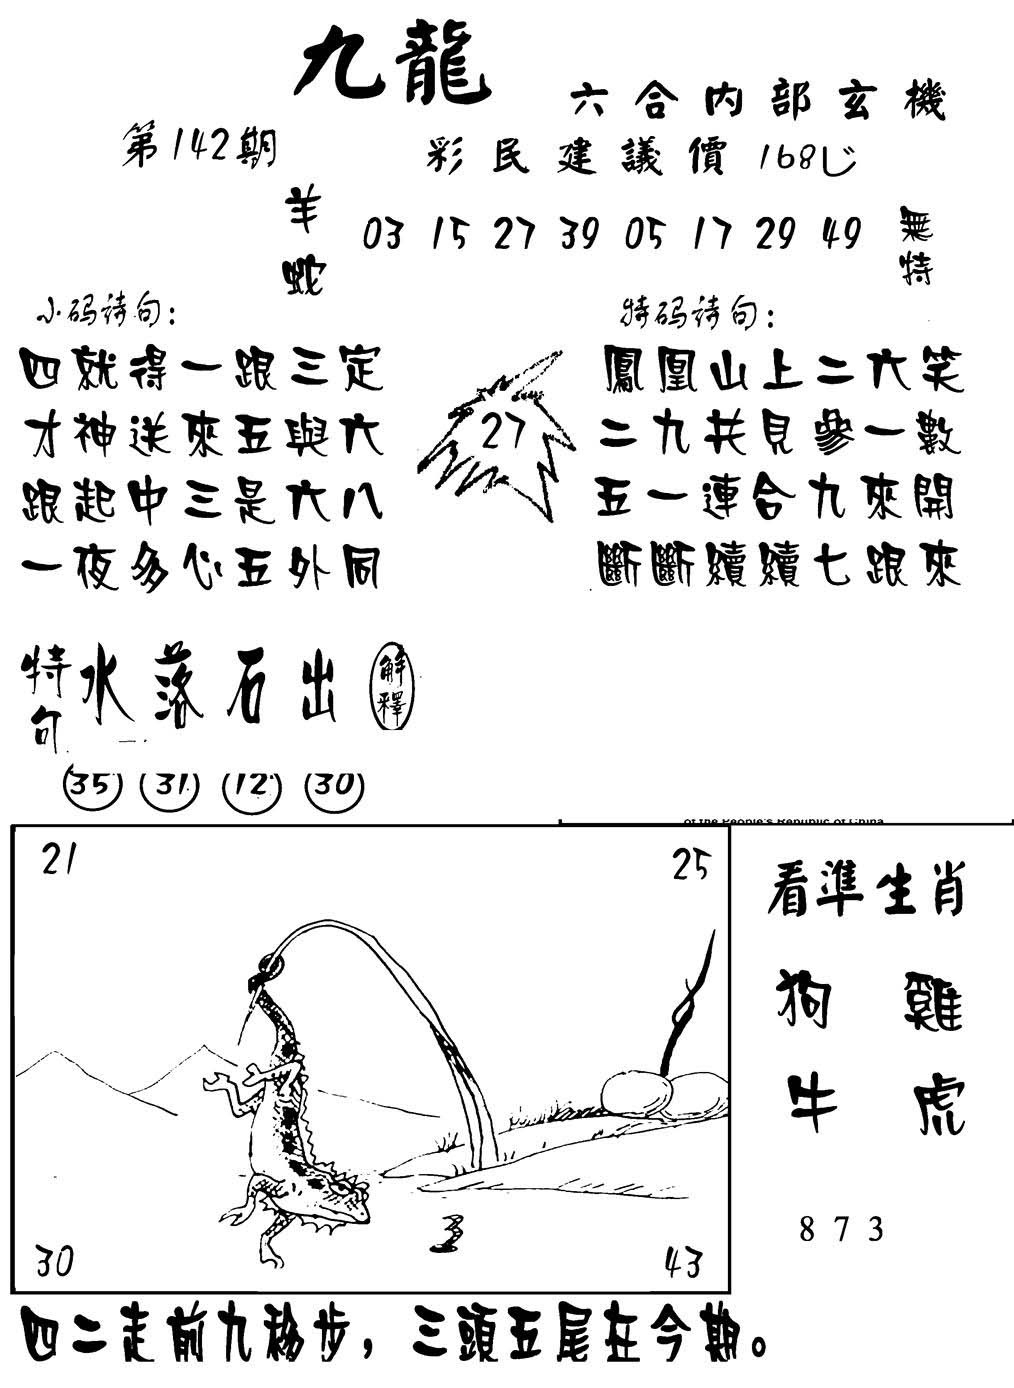 九龍
六合内部玄機
第142期
彩民建議價168じ
羊蛇
03 15 27 39 05 17 29 49
無特
小码诗句：
四就得一跟三定
才神送來五與六
跟起中三是六八
一夜多心五外同
27
特码诗句：
鳳凰山上二六笑
二九共見參一數
五一連合九來開
斷斷續續七跟來
特句 水落石出 解釋
35 31 12 30
of the People's Republic of China
21 25
30 43
看準生肖
狗 雞
牛 虎
8 7 3
四二走前九移步，三頭五尾在今期。